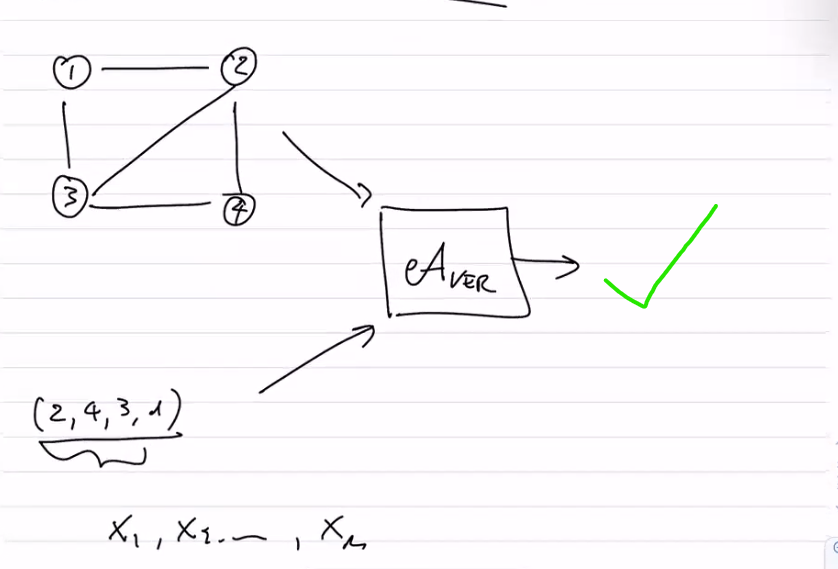 1 2
3 4
𝒜VER
(2, 4, 3, 1)
x₁, x₂, ..., xₙ